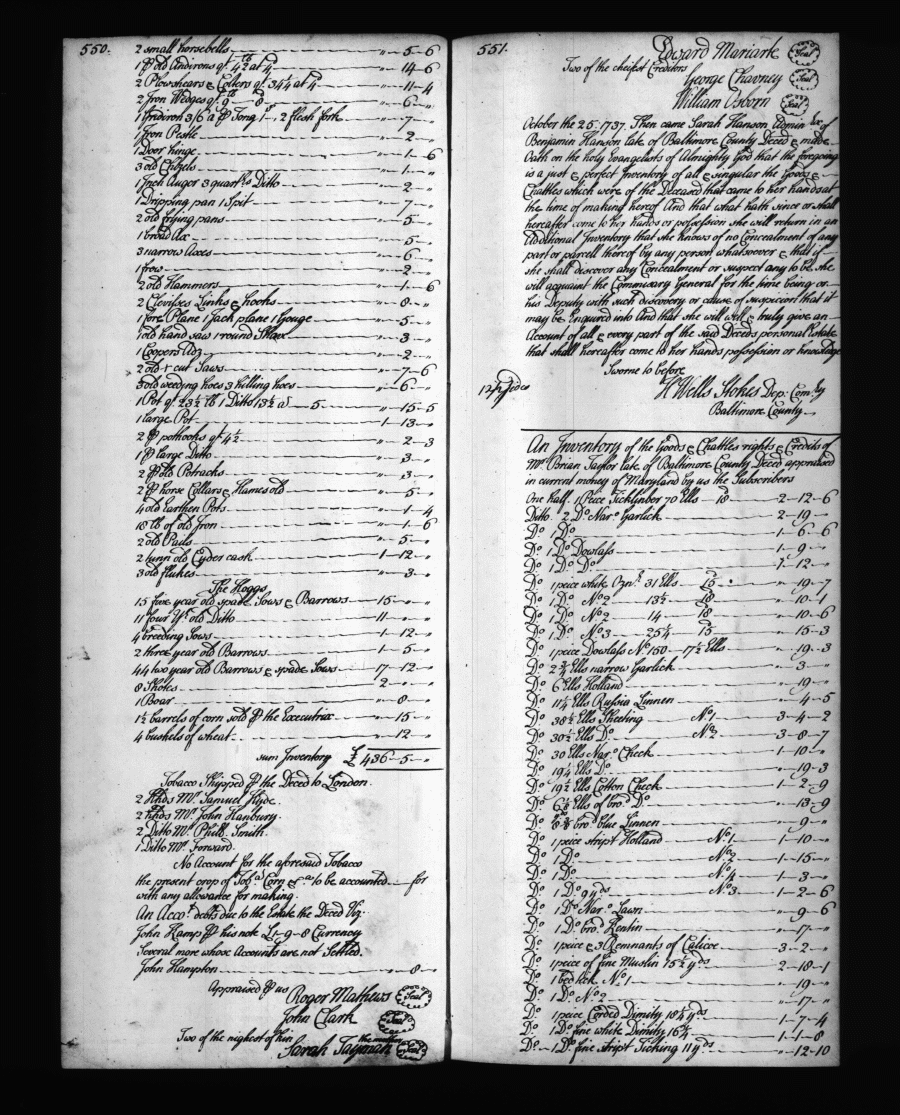 550.
2 small horsebells " - 5 - 6
1 pr old Andirons qt. 42 lb at 4 " - 14 - 6
2 Plowshears & Colters qt. 34¼ at 4 " - 11 - 4
2 Iron Wedges qt. 9 lb " - 6 - "
1 Gridiron 3/6 a pr Tong 1-, 2 flesh fork " - 7 - "
1 Iron Pestle " - 2 - "
1 Door hinge " - 1 - 6
3 old Chizels " - 1 - "
1 Inch Auger 3 quartrs Ditto " - 2 - "
1 Dripping pan 1 Spit " - 7 - "
2 old frying pans " - 5 - "
1 broad Ax " - 5 - "
3 narrow Axes " - 6 - "
1 frow " - 2 - "
2 old Hammers " - 1 - 6
2 Clevises Links & hooks " - 8 - "
1 fore Plane 1 Jack plane 1 Gouge " - 5 - "
1 old hand saw 1 round Shave " - 3 - "
1 Coopers Adz " - 2 - "
2 old + cut Saws " - 7 - 6
3 old weeding hoes 3 hilling hoes " - 6 - "
1 Pot qt 23½ lb 1 Ditto 13½ a 5 " - 15 - 5
1 large Pot " - 13 - "
2 pr pothooks qt 4½ " - 2 - 3
1 pr large Ditto " - 3 - "
2 pr old Potracks " - 3 - "
2 pr horse Collars & Hames old " - 5 - "
4 old Earthen Pots " - 1 - 4
18 lb of old Iron " - 1 - 6
2 old Pails " - 5 - "
2 tunn old Cyder cask 1 - 12 - "
3 old flukes " - 3 - "
The Hoggs
15 five year old spade Sows & Barrows 15 - " - "
11 four Yr old Ditto 11 - " - "
4 breeding Sows 1 - 12 - "
2 three year old Barrows 1 - 5 - "
44 two year old Barrows & spade Sows 17 - 12 - "
8 Shotes 2 - " - "
1 Boar " - 8 - "
1½ barrels of corn sold pr the Executrix " - 15 - "
4 bushels of wheat " - 12 - "
sum Inventory £ 436 - 5 - "
Tobacco Shipped pr the Deced to London
2 Hhds Mr Samuel Hyde.
2 Hhds Mr John Hanbury.
2 Ditto Mr Phill. Smith.
1 Ditto Mr Forward.
No Account for the aforesaid Tobacco
the present crop of Tobo Corn &ca to be accounted for
with any allowance for making.
An Accot debts due to the Estate the Deced Viz.
John Hamp pr his note £1-9-8 Currency
Several more whose Accounts are not Settled.
John Hampton " - 8 - "
Appraised pr us
Roger Mathews Seal
John Clark Seal
Two of the nighest of kin
the mother
Sarah Tayman Seal
551.
Edward Mariarte Seal
Two of the cheifest Creditors
George Chavney Seal
William Osborn Seal
October the 25. 1737. Then came Sarah Hanson Adminx of
Benjamin Hanson late of Baltimore County Deced & made
Oath on the holy Evangelists of Almighty God that the foregoing
is a just & perfect Inventory of all & singular the Goods &
Chattles which were of the Deceased that came to her hands at
the time of making hereof And that what hath since or shall
hereafter come to her hands or possession she will return in an
Additional Inventory that she knows of no Concealment of any
part or parcell thereof by any person whatsoever & that if
she shall discover any Concealment or suspect any to be she
will acquaint the Commissary General for the time being or
his Deputy with such discovery or cause of suspicion that it
may be Enquired into And that she will well & truly give an
Account of all & every part of the said Deceds personal Estate
that shall hereafter come to her hands possession or knowledge
Sworne to before
124 Sides
H Wells Stokes Dep: Comry
Baltimore County
An Inventory of the Goods & Chattles rights & Credits of
Mr Brian Taylor late of Baltimore County Deced appraised
in current money of Maryland by us the Subscribers
One half. 1 Peice Ticklinber 70 Ells 18d 2 - 12 - 6
Ditto 2 Do Naro Garlick 2 - 19 - "
Do 1 Do 1 - 6 - 6
Do 1 Do Dowlass 1 - 9 - "
Do 1 Do Do 1 - 12 - "
Do 1 peice white Oznr 31 Ells 15d " - 19 - 7
Do 1 Do No 2 13½ 18 " - 10 - 1
Do 1 Do No 2 14 18 " - 10 - 6
Do 1 Do No 3 25¼ 15 " - 15 - 3
Do 1 peice Dowlass No 150 17½ Ells " - 19 - 3
Do 2¾ Ells narrow Garlick " - 3 - "
Do 6 Ells Holland " - 19 - "
Do 11¼ Ells Russia Linnen " - 4 - 5
Do 38½ Ells Sheeting No 1 3 - 4 - 2
Do 30½ Ells Do No 2 3 - 8 - 7
Do 30 Ells Naro Check 1 - 10 - "
Do 19¼ Ells Do " - 19 - 3
Do 19½ Ells Cotton Check 1 - 2 - 9
Do 6⅛ Ells of bro. Do " - 13 - 9
Do bro. blue Linnen " - 9 - "
Do 1 peice stript Holland No 1 1 - 10 - "
Do 1 Do No 2 1 - 15 - "
Do 1 Do No 4 1 - 3 - "
Do 1 Do 9 yds No 3 1 - 2 - 6
Do 1 Do Naro Lawn " - 9 - 6
Do 1 Do bro. Kentin " - 17 - "
Do 1 peice & 3 Remnants of Calicoe 3 - 2 - "
Do 1 peice of fine Muslin 15½ yds 2 - 18 - 1
Do 1 bed tick No 1 " - 19 - "
Do 1 Do No 2 " - 17 - "
Do 1 peice Corded Dimity 18¼ yds 1 - 7 - 4
Do 1 Do fine white Dimity 16¼ 1 - 1 - 8
Do 1 Do fine stript Ticking 11 yds " - 12 - 10